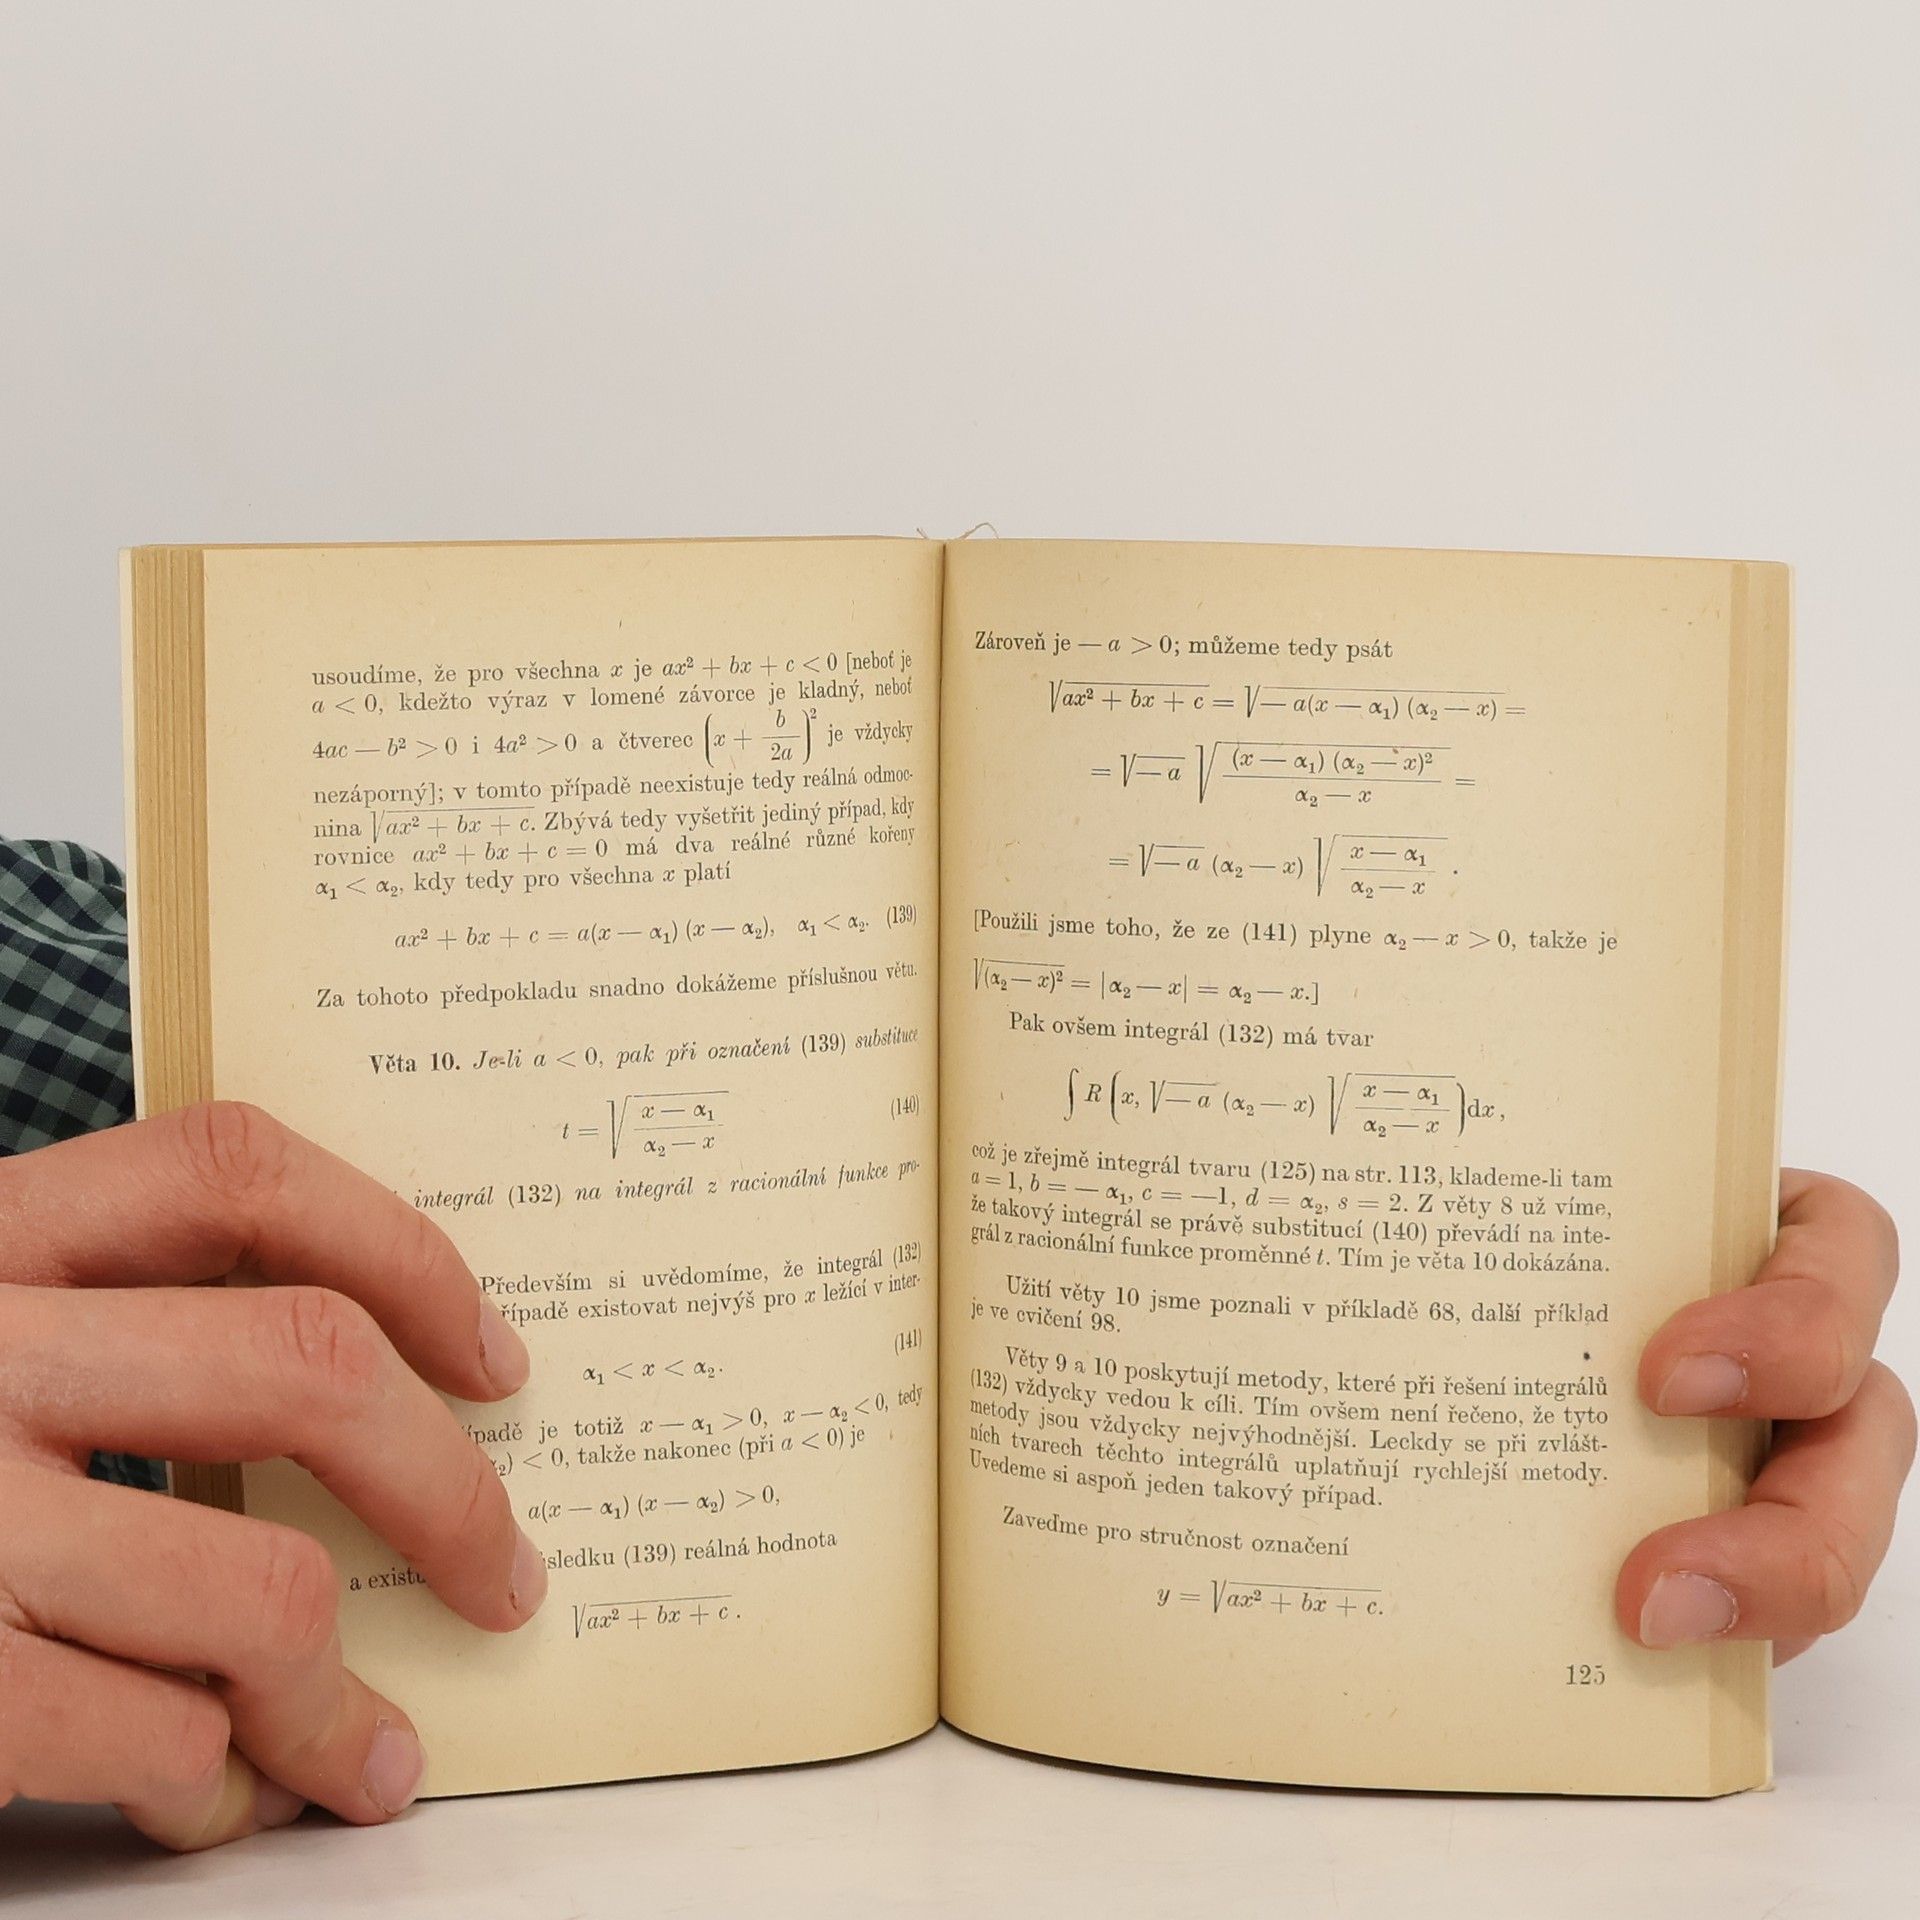 usoudíme, že pro všechna x je ax² + bx + c < 0 [neboť je
a < 0, kdežto výraz v lomené závorce je kladný, neboť
4ac — b² > 0 i 4a² > 0 a čtverec (x + b/2a)² je vždycky
nezáporný]; v tomto případě neexistuje tedy reálná odmoc-
nina √(ax² + bx + c). Zbývá tedy vyšetřit jediný případ, kdy
rovnice ax² + bx + c = 0 má dva reálné různé kořeny
α₁ < α₂, kdy tedy pro všechna x platí
ax² + bx + c = a(x — α₁) (x — α₂), α₁ < α₂. (139)
Za tohoto předpokladu snadno dokážeme příslušnou větu.
Věta 10. Je-li a < 0, pak při označení (139) substituce
t = √((x — α₁)/(α₂ — x)) (140)
integrál (132) na integrál z racionální funkce pro-
Především si uvědomíme, že integrál (132)
případě existovat nejvýš pro x ležící v inter-
α₁ < x < α₂. (141)
je totiž x — α₁ > 0, x — α₂ < 0, tedy
₂) < 0, takže nakonec (při a < 0) je
a(x — α₁) (x — α₂) > 0,
a (139) reálná hodnota
√(ax² + bx + c) .
Zároveň je — a > 0; můžeme tedy psát
√(ax² + bx + c) = √(— a(x — α₁) (α₂ — x)) =
= √(— a) √((x — α₁) (α₂ — x)²/(α₂ — x)) =
= √(— a) (α₂ — x) √((x — α₁)/(α₂ — x)) .
[Použili jsme toho, že ze (141) plyne α₂ — x > 0, takže je
√((α₂ — x)²) = |α₂ — x| = α₂ — x.]
Pak ovšem integrál (132) má tvar
∫ R (x, √(— a) (α₂ — x) √((x — α₁)/(α₂ — x))) dx ,
což je zřejmě integrál tvaru (125) na str. 113, klademe-li tam
a = 1, b = — α₁, c = —1, d = α₂, s = 2. Z věty 8 už víme,
že takový integrál se právě substitucí (140) převádí na inte-
grál z racionální funkce proměnné t. Tím je věta 10 dokázána.
Užití věty 10 jsme poznali v příkladě 68, další příklad
je ve cvičení 98.
Věty 9 a 10 poskytují metody, které při řešení integrálů
(132) vždycky vedou k cíli. Tím ovšem není řečeno, že tyto
metody jsou vždycky nejvýhodnější. Leckdy se při zvlášt-
ních tvarech těchto integrálů uplatňují rychlejší metody.
Uvedeme si aspoň jeden takový případ.
Zaveďme pro stručnost označení
y = √(ax² + bx + c).
125